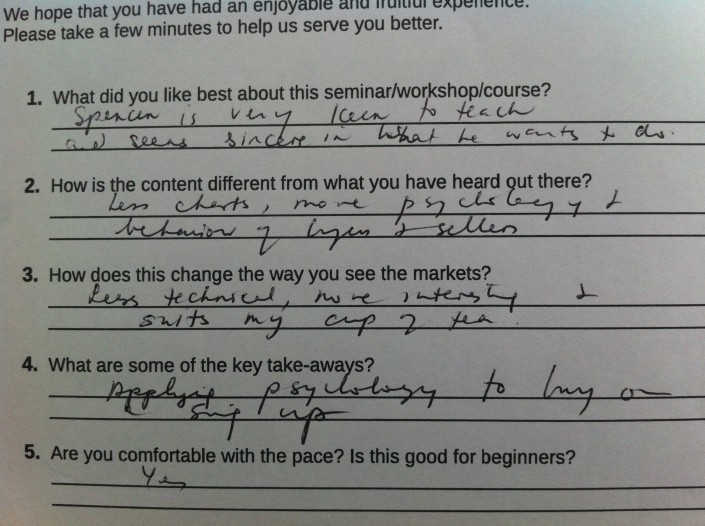 We hope that you have had an enjoyable and fruitful experience.
Please take a few minutes to help us serve you better.
1. What did you like best about this seminar/workshop/course?
Spencer is very keen to teach
and seems sincere in what he wants to do.
2. How is the content different from what you have heard out there?
Less charts, more psychology &
behavior of buyers & sellers
3. How does this change the way you see the markets?
Less technical, more interesting &
suits my cup of tea.
4. What are some of the key take-aways?
Applying psychology to buy on
up
5. Are you comfortable with the pace? Is this good for beginners?
Yes